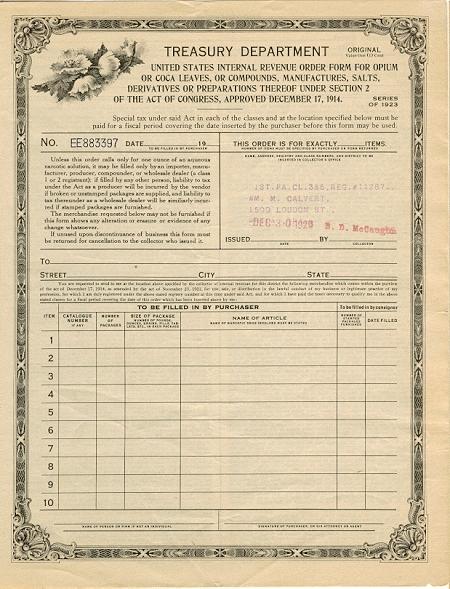 TREASURY DEPARTMENT
ORIGINAL
UNITED STATES INTERNAL REVENUE ORDER FORM FOR OPIUM
OR COCA LEAVES, OR COMPOUNDS, MANUFACTURES, SALTS,
DERIVATIVES OR PREPARATIONS THEREOF UNDER SECTION 2
OF THE ACT OF CONGRESS, APPROVED DECEMBER 17, 1914.
SERIES
OF 1923
Special tax under said Act in each of the classes and at the location specified below must be
paid for a fiscal period covering the date inserted by the purchaser before this form may be used.
No. EE883397 DATE 19
TO BE FILLED IN BY PURCHASER
THIS ORDER IS FOR EXACTLY ITEMS.
NUMBER OF ITEMS MUST BE SPECIFIED BY PURCHASER OR FORM RETURNED
NAME, ADDRESS, REGISTRY AND CLASS NUMBERS, AND DISTRICT TO BE
INSERTED IN COLLECTOR'S OFFICE
Unless this order calls only for one ounce of an aqueous
narcotic solution, it may be filled only by an importer, manu-
facturer, producer, compounder, or wholesale dealer (a class
1 or 2 registrant); if filled by any other person, liability to tax
under the Act as a producer will be incurred by the vendor
if broken or unstamped packages are supplied, and liability to
tax thereunder as a wholesale dealer will be similarly incur-
red if stamped packages are furnished.
The merchandise requested below may not be furnished if
this form shows any alteration or erasure or evidence of any
change whatsoever.
If unused upon discontinuance of business this form must
be returned for cancellation to the collector who issued it.
1ST.PA.CL.3&5,REG.#11267..
WM. M. CALVERT,
1500 LOUDON ST.,
DEC 30 1926 B. D. McCaughn
ISSUED BY
DATE COLLECTOR
TO
STREET CITY STATE
TO BE FILLED IN BY PURCHASER
To be filled in by consignor
ITEM
CATALOGUE NUMBER IF ANY
NUMBER OF PACKAGES
SIZE OF PACKAGE
NAME OF ARTICLE
NUMBER OF STAMPED PACKAGES FURNISHED
DATE FILLED
1
2
3
4
5
6
7
8
9
10
NAME OF PERSON OR FIRM IF NOT AN INDIVIDUAL
SIGNATURE OF PURCHASER, OR HIS ATTORNEY OR AGENT